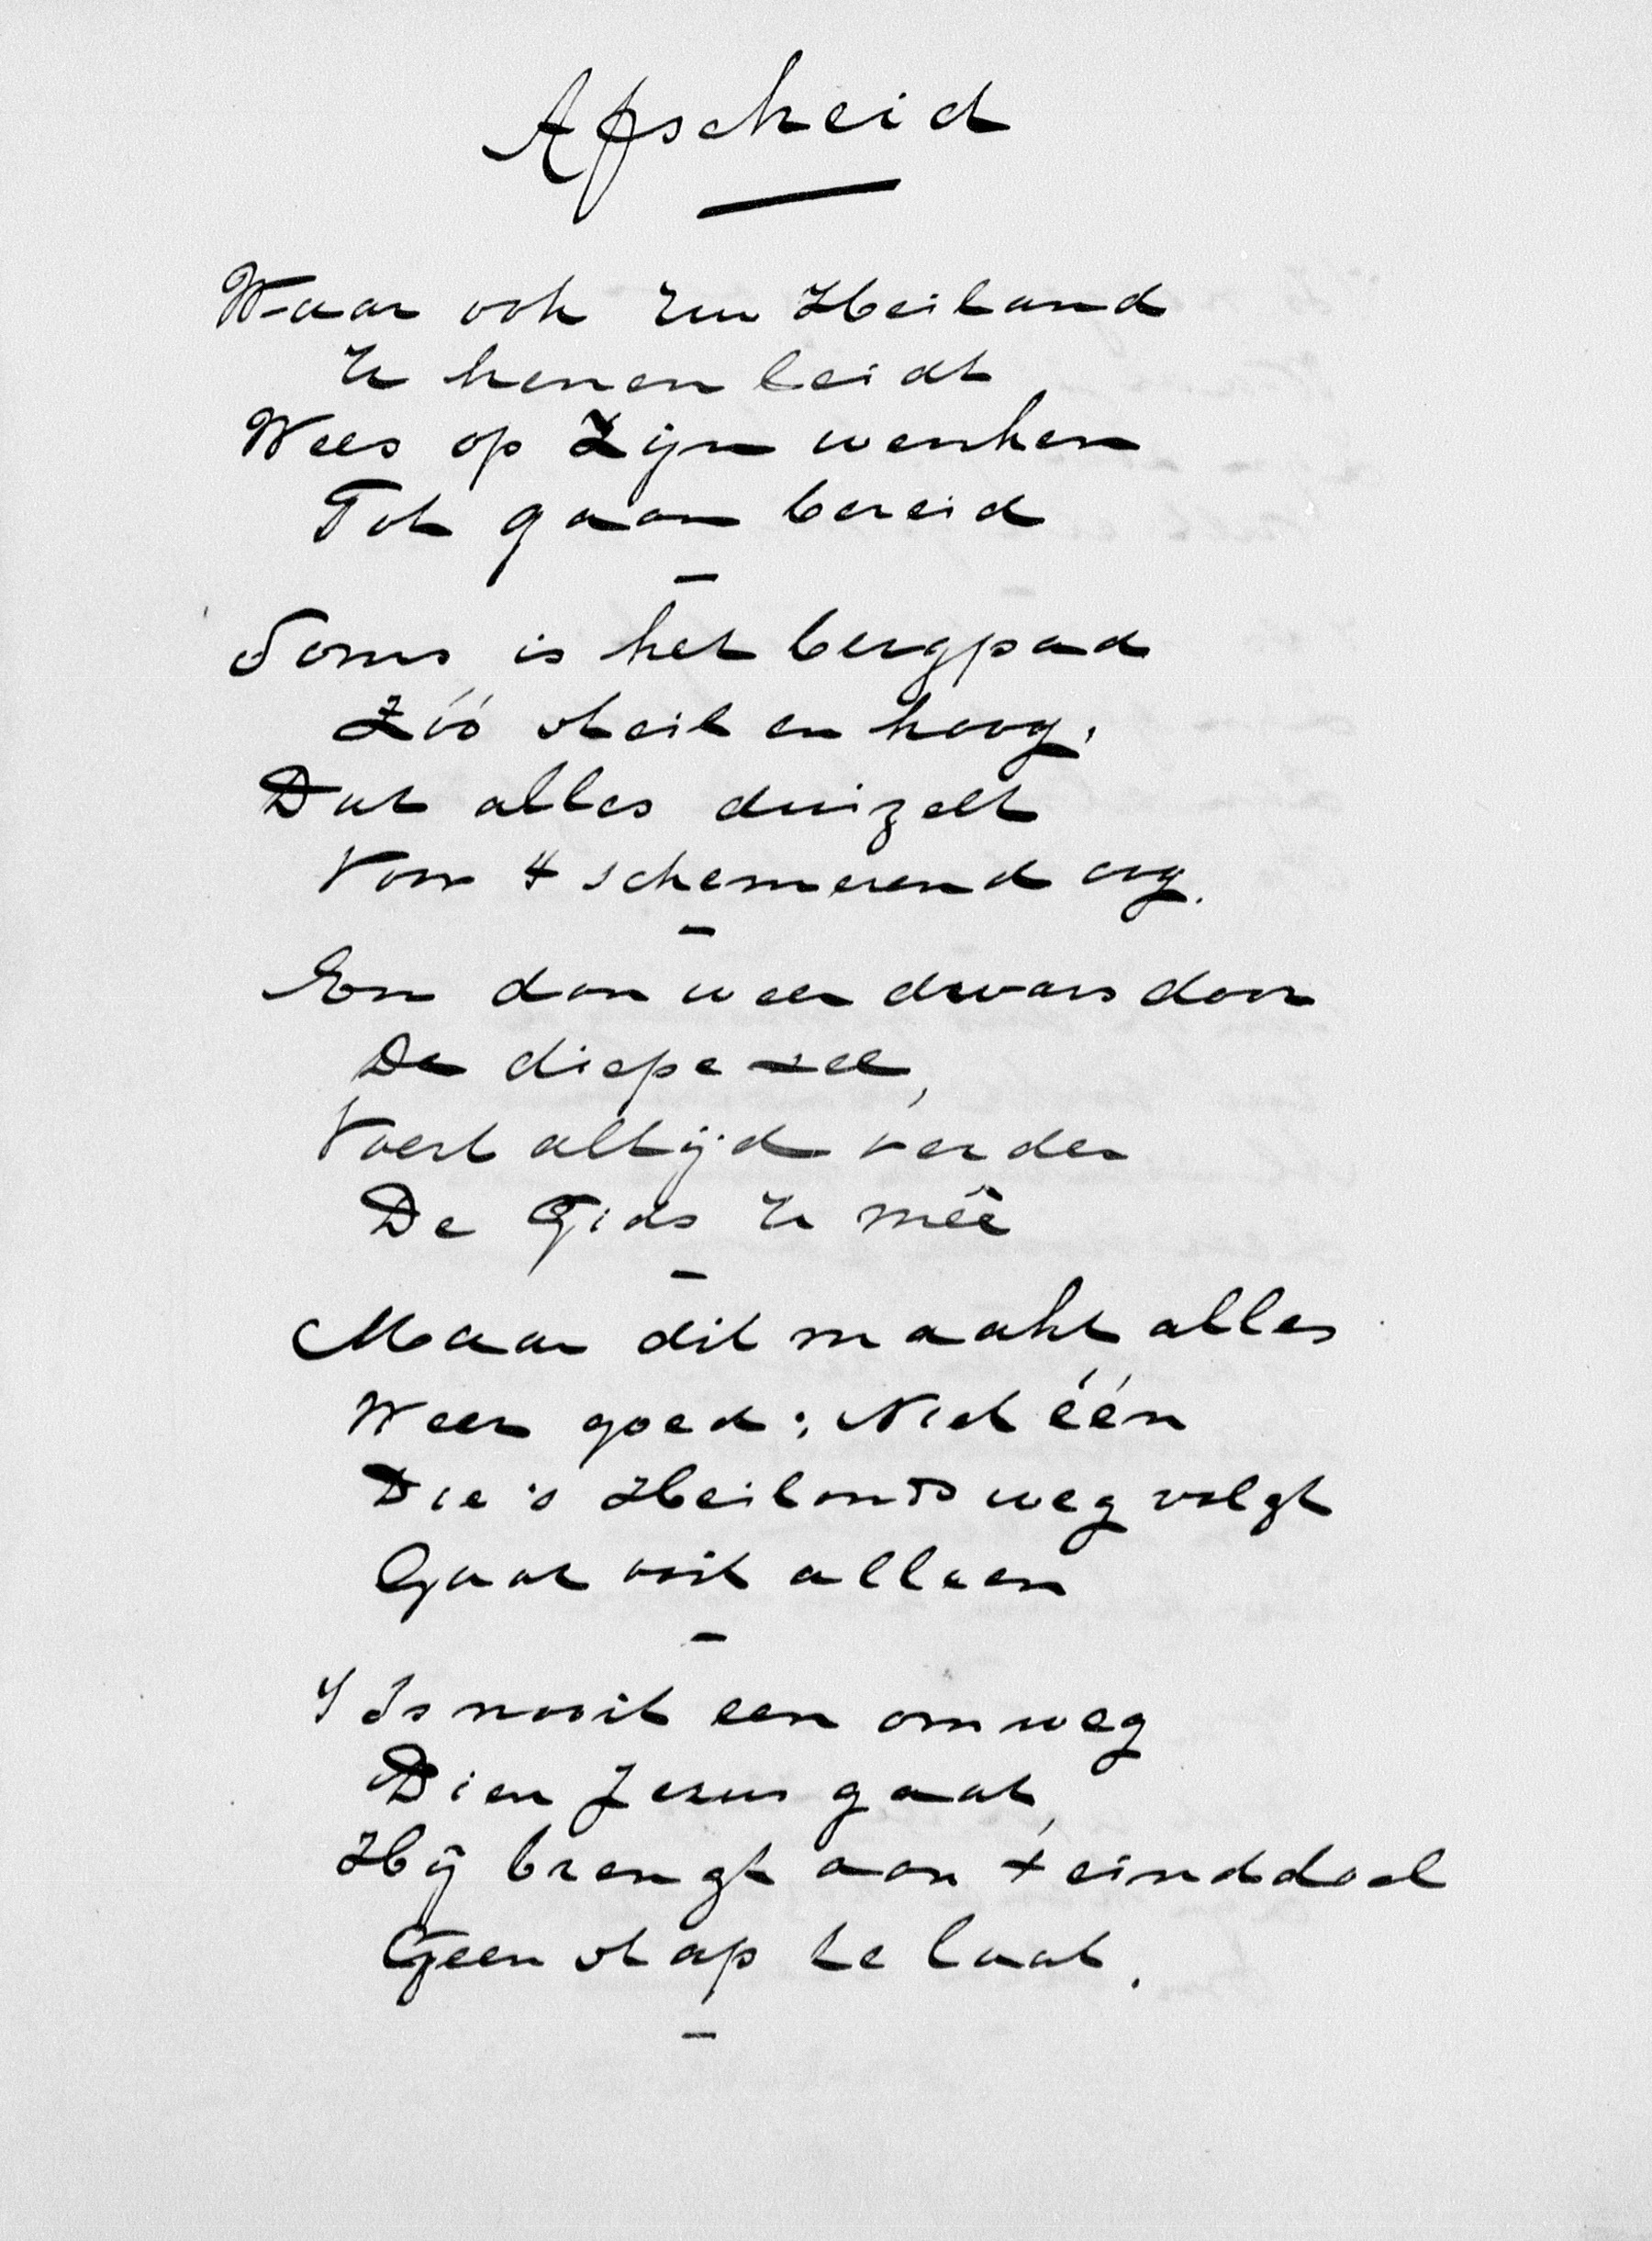 Afscheid
Waar ook Uw Heiland
U henen leidt
Wees op Zijn wenken
Tot gaan bereid
—
Soms is het bergpad
Zóó steil en hoog,
Dat alles duizelt
Voor 't schemerend oog.
—
En dan weer dwars door
De diepe zee,
Voert altijd verder
De Gids U meê
—
Maar dit maakt alles
Weer goed; Niet één
Die 's Heilands weg volgt
Gaat ooit alleen
—
't Is nooit een omweg
Dien Jezus gaat,
Hij brengt aan 't einddoel
Geen stap te laat.
—